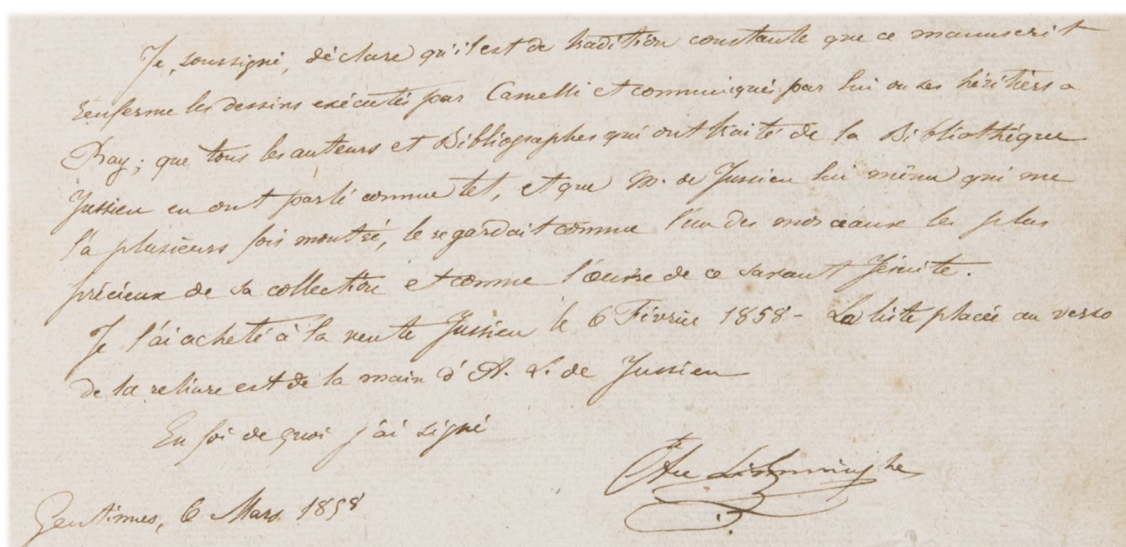 Je, soussigné, déclare qu'il est de tradition constante que ce manuscrit
renferme les dessins exécutés par Camelli et communiqués par lui ou ses héritiers a
Ray; que tous les auteurs et Bibliographes qui ont traité de la Bibliothéque
Jussieu en ont parlé comme tel, et que M. de Jussieu lui même qui me
l'a plusieurs fois montré, le regardait comme l'un des morceaux les plus
précieux de sa collection et comme l'œuvre de ce savant Jésuite.
Je l'ai acheté à la vente Jussieu le 6 Février 1858 - La liste placée au verso
de la reliure est de la main d'A. L. de Jussieu
En foi de quoi j'ai signé
Cte A de Limminghe
Gentinnes, 6 Mars 1858